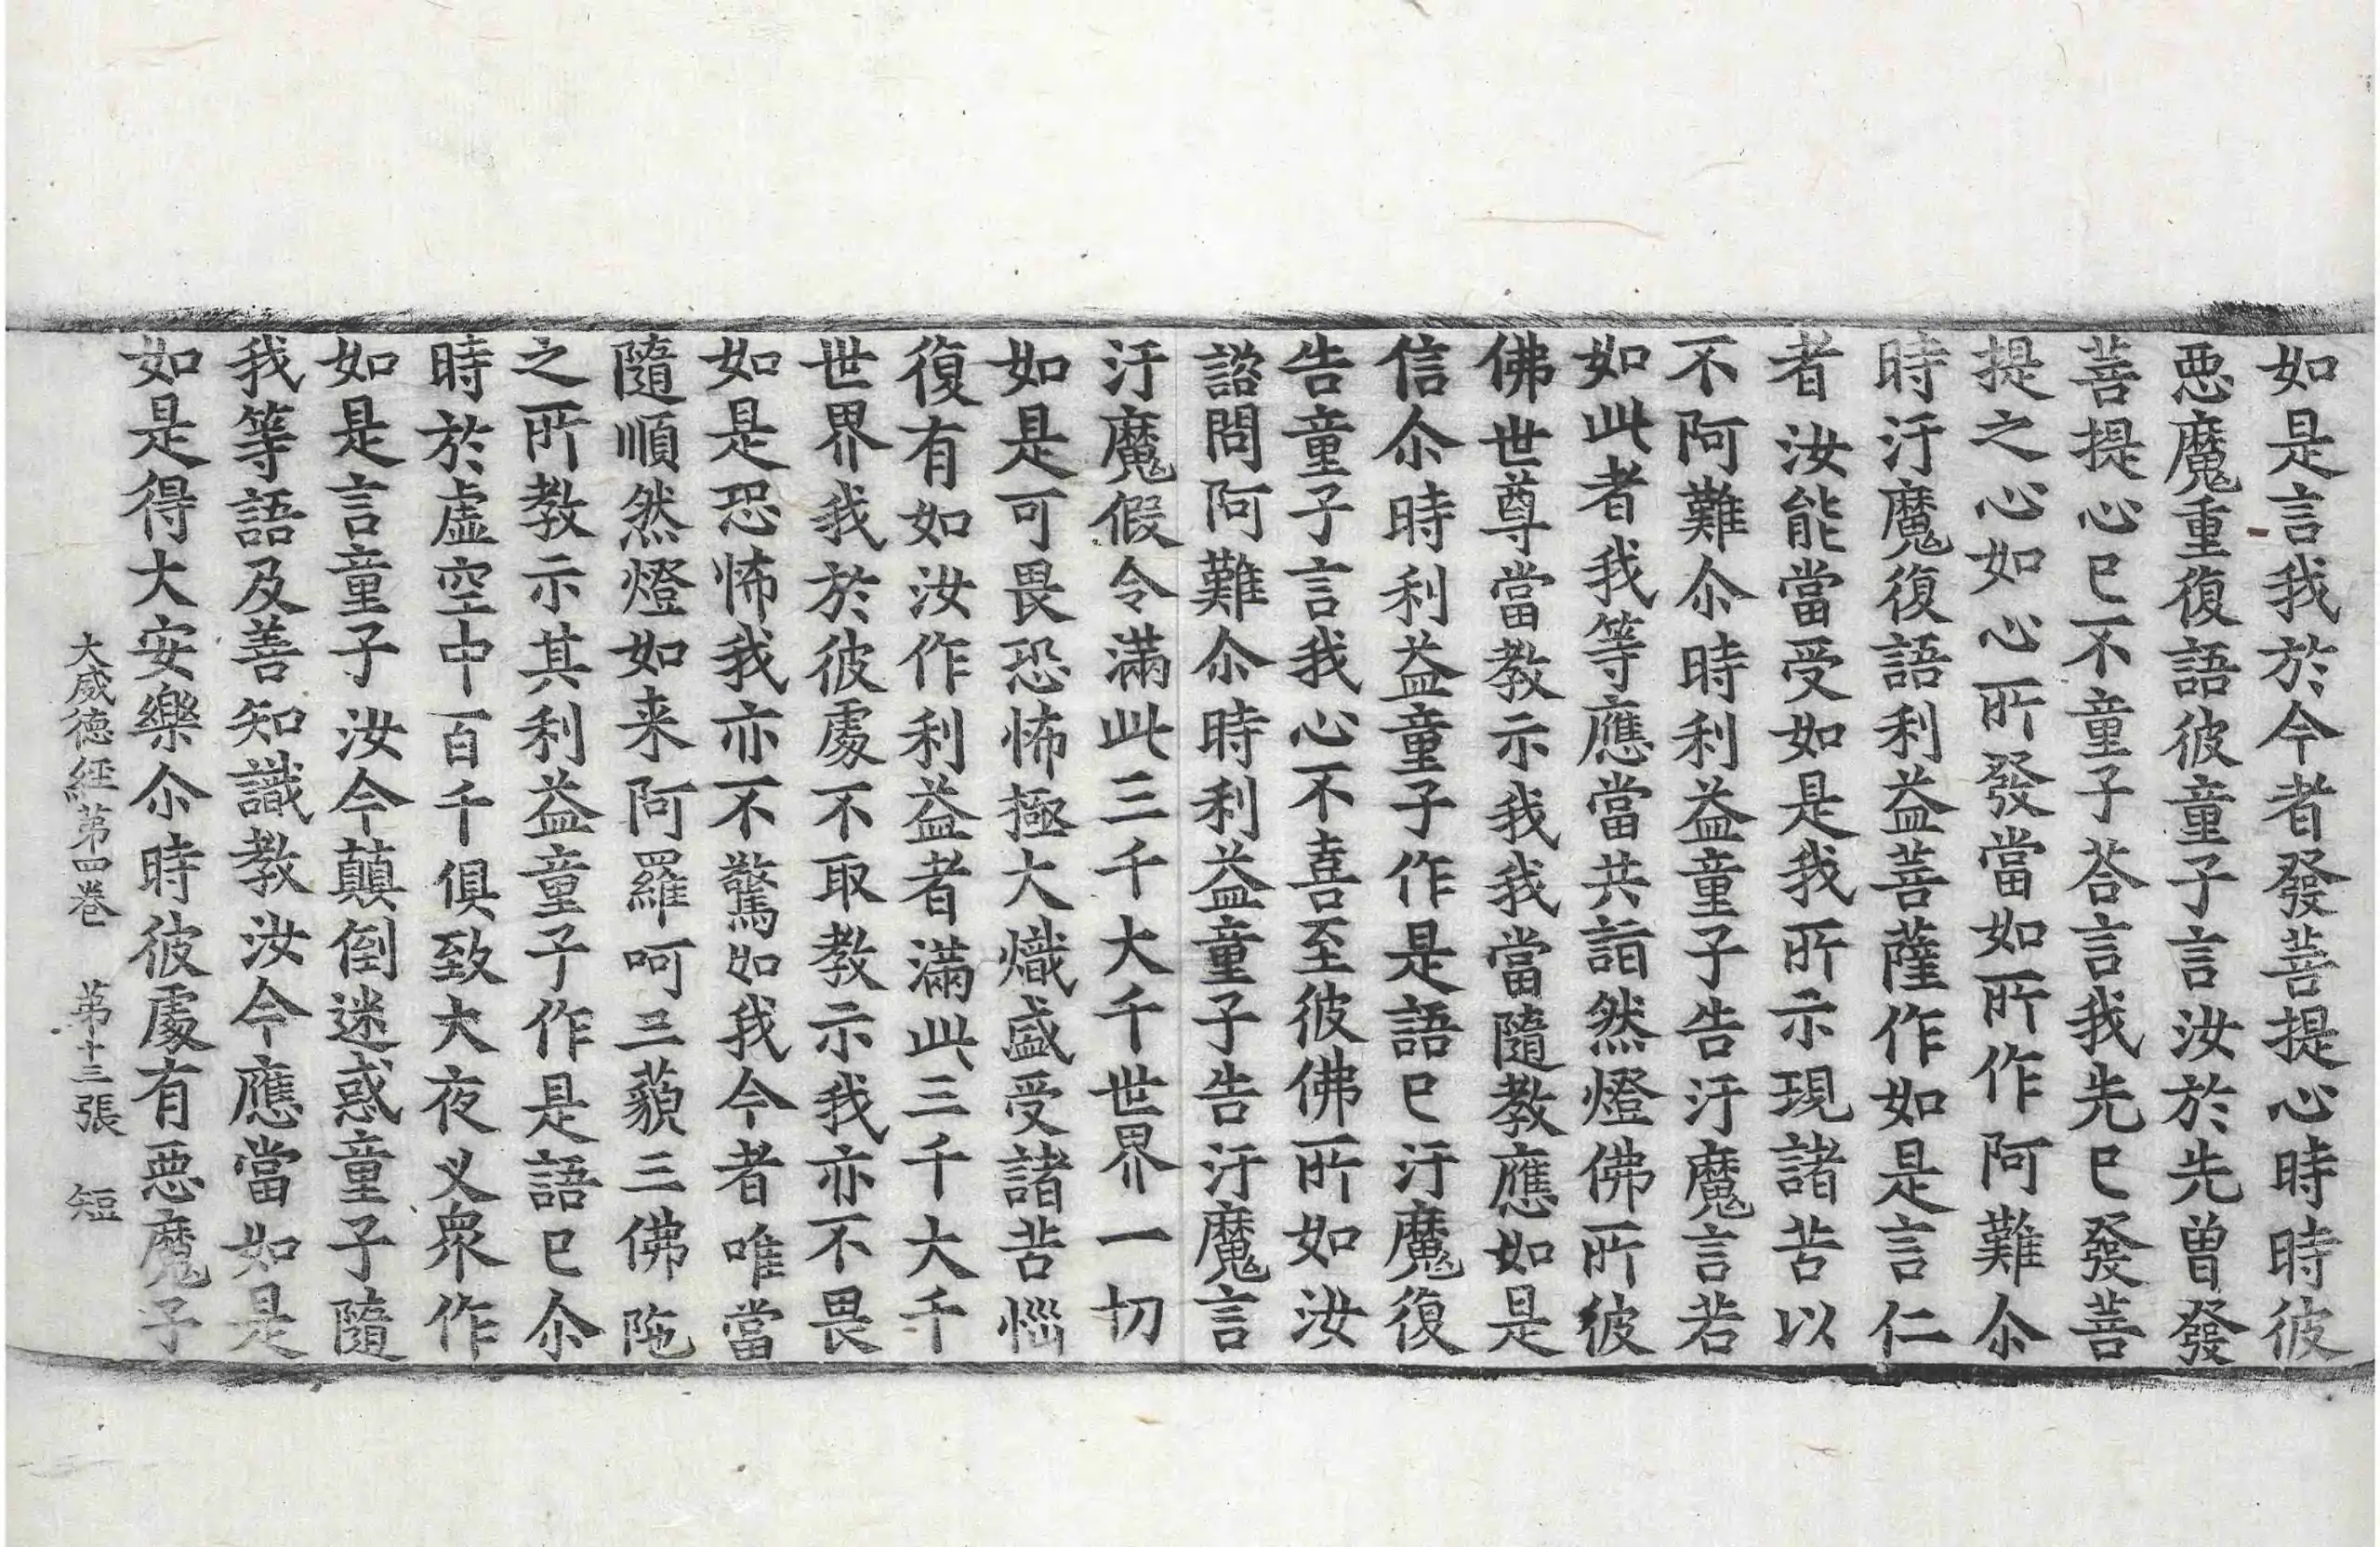 如是言我於今者發菩提心時時彼
惡魔重復語彼童子言汝於先曾發
菩提心已不童子荅言我先已發菩
提之心如心所發當如所作阿難尒
時汙魔復語利益菩薩作如是言仁
者汝能當受如是我所示現諸苦以
不阿難尒時利益童子告汙魔言若
如此者我等應當共詣然燈佛所彼
佛世尊當教示我我當隨教應如是
信尒時利益童子作是語已汙魔復
告童子言我心不喜至彼佛所如汝
諮問阿難尒時利益童子告汙魔言
汙魔假令滿此三千大千世界一切
如是可畏恐怖極大熾盛受諸苦惱
復有如汝作利益者滿此三千大千
世界我於彼處不取教示我亦不畏
如是恐怖我亦不驚如我今者唯當
隨順然燈如来阿羅呵三藐三佛陁
之所教示其利益童子作是語已尒
時於虛空中百千俱致大夜叉衆作
如是言童子汝今顛倒迷惑童子隨
我等語及善知識教汝今應當如是
如是得大安樂尒時彼處有惡魔子
大威德經第四卷 第十三張 短